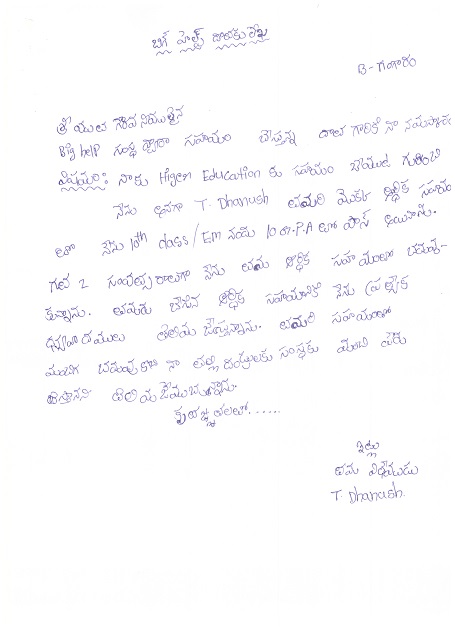 బిగ్ హెల్ప్ దాతకు లేఖ
B - గంగారం
శ్రీయుత గౌరవనీయులైన
Big help సంస్థ ద్వారా సహాయం చేస్తున్న దాత గారికి నా నమస్కారం
విషయం: నాకు Higer Education కు సహాయం చేయుట గురించి
నేను అనగా T. Dhanush తమరి యొక్క ఆర్థిక సహాయం
తో నేను 10th class / Em నందు 10 G.P.A తో పాస్ అయినాను.
గత 2 సంవత్సరాలుగా నేను తమ ఆర్థిక సహాయంతో చదువు-
కున్నాను. తమరు చేసిన ఆర్థిక సహాయానికి నేను ప్రత్యేక
ధన్యవాదములు తెలియ చేస్తున్నాను. తమరి సహాయంతో
మంచిగ చదువుకొని నా తల్లి దండ్రులకు సంస్థకు మంచి పేరు
తెస్తానని తెలియజేయుచున్నాను.
కృతజ్ఞతలతో......
ఇట్లు
తమ విధేయుడు
T. Dhanush.